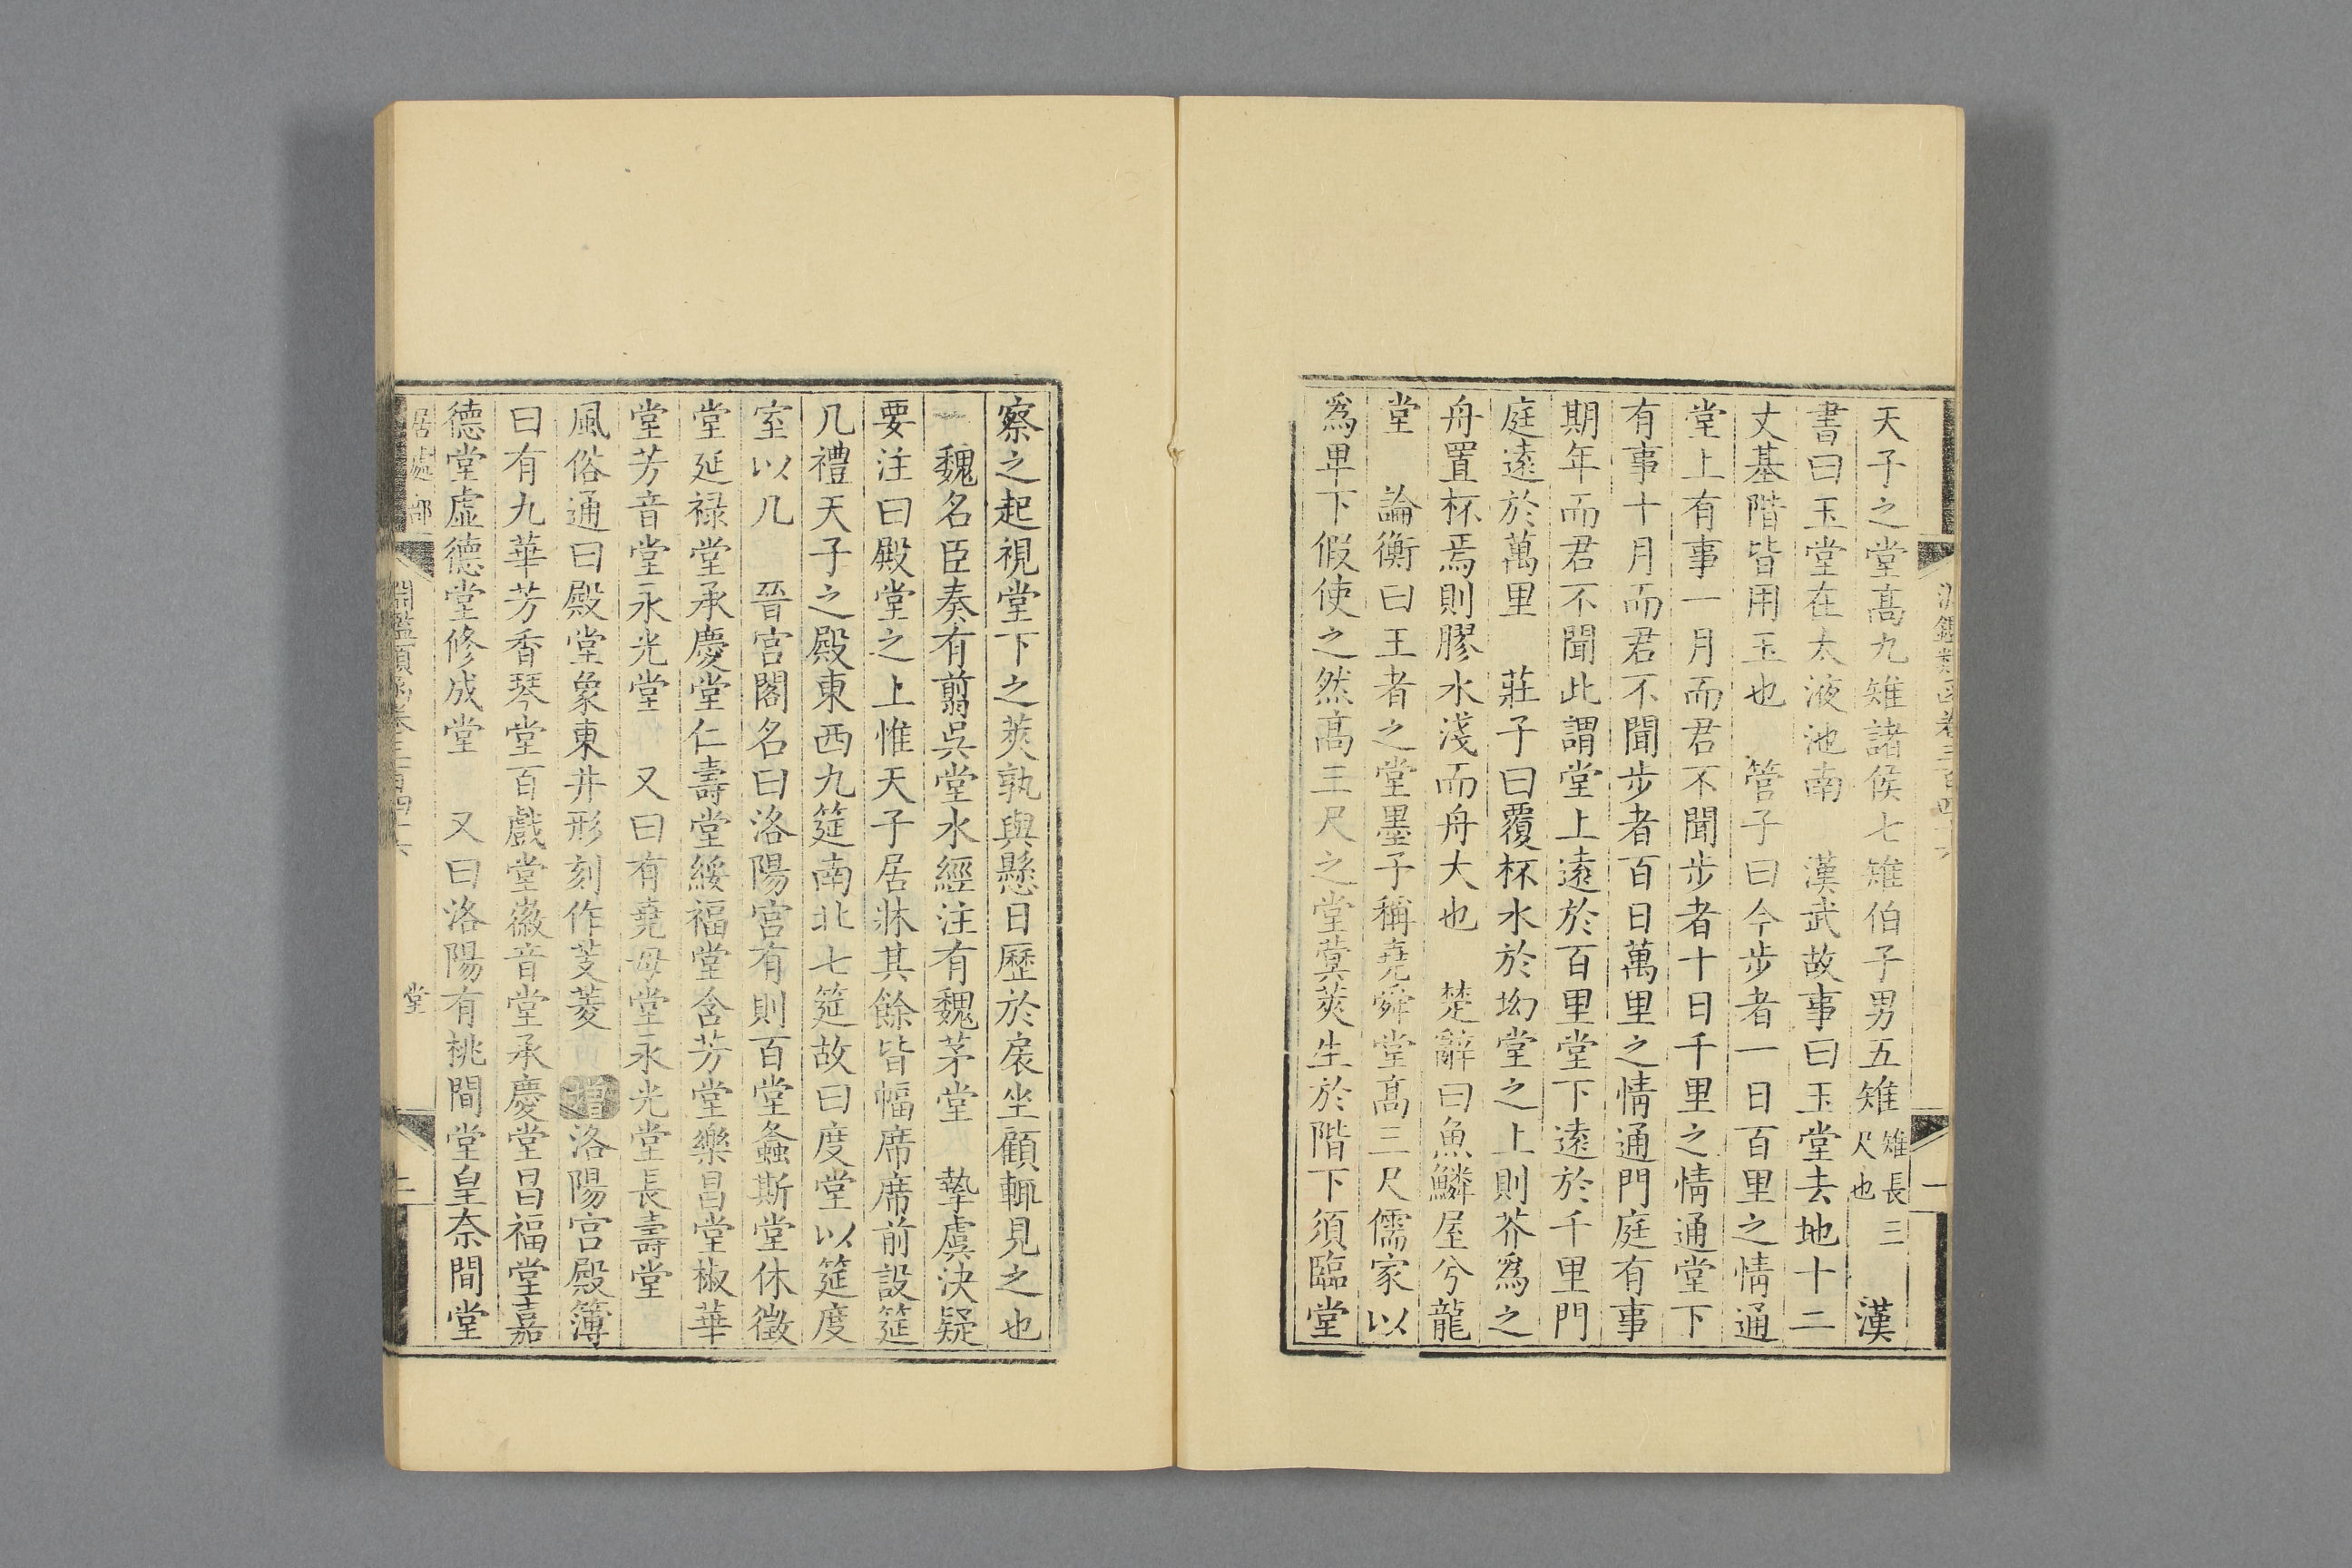 天子之堂髙九雉諸侯七雉伯子男五雉雉長三尺也　漢
書曰玉堂在太液池南　漢武故事曰玉堂去地十二
丈基階皆用玉也　管子曰今步者一日百里之情通
堂上有事一月而君不聞步者十日千里之情通堂下
有事十月而君不聞步者百日萬里之情通門庭有事
期年而君不聞此謂堂上遠於百里堂下遠於千里門
庭遠於萬里　莊子曰覆杯水於坳堂之上則芥爲之
舟置杯焉則膠水淺而舟大也　楚辭曰魚鱗屋兮龍
堂　論衡曰王者之堂墨子稱堯舜堂髙三尺儒家以
爲卑下假使之然髙三尺之堂蓂莢生於階下須臨堂
察之起視堂下之莢孰與懸日歷於扆坐顧輒見之也
魏名臣奏有翦吳堂水經注有魏茅堂　摯虞決疑
要注曰殿堂之上惟天子居牀其餘皆幅席席前設筵
几禮天子之殿東西九筵南北七筵故曰度堂以筵度
室以几　晉宫閣名曰洛陽宫有則百堂螽斯堂休徵
堂延禄堂承慶堂仁壽堂綏福堂含芳堂樂昌堂椒華
堂芳音堂永光堂　又曰有堯母堂永光堂長壽堂
風俗通曰殿堂象東井形刻作芰菱　增洛陽宫殿簿
曰有九華芳香琴堂百戲堂徽音堂承慶堂昌福堂嘉
德堂虛德堂修成堂　又曰洛陽有桃間堂皇奈間堂
居處部　淵鑑類函卷三百四十六　堂　二